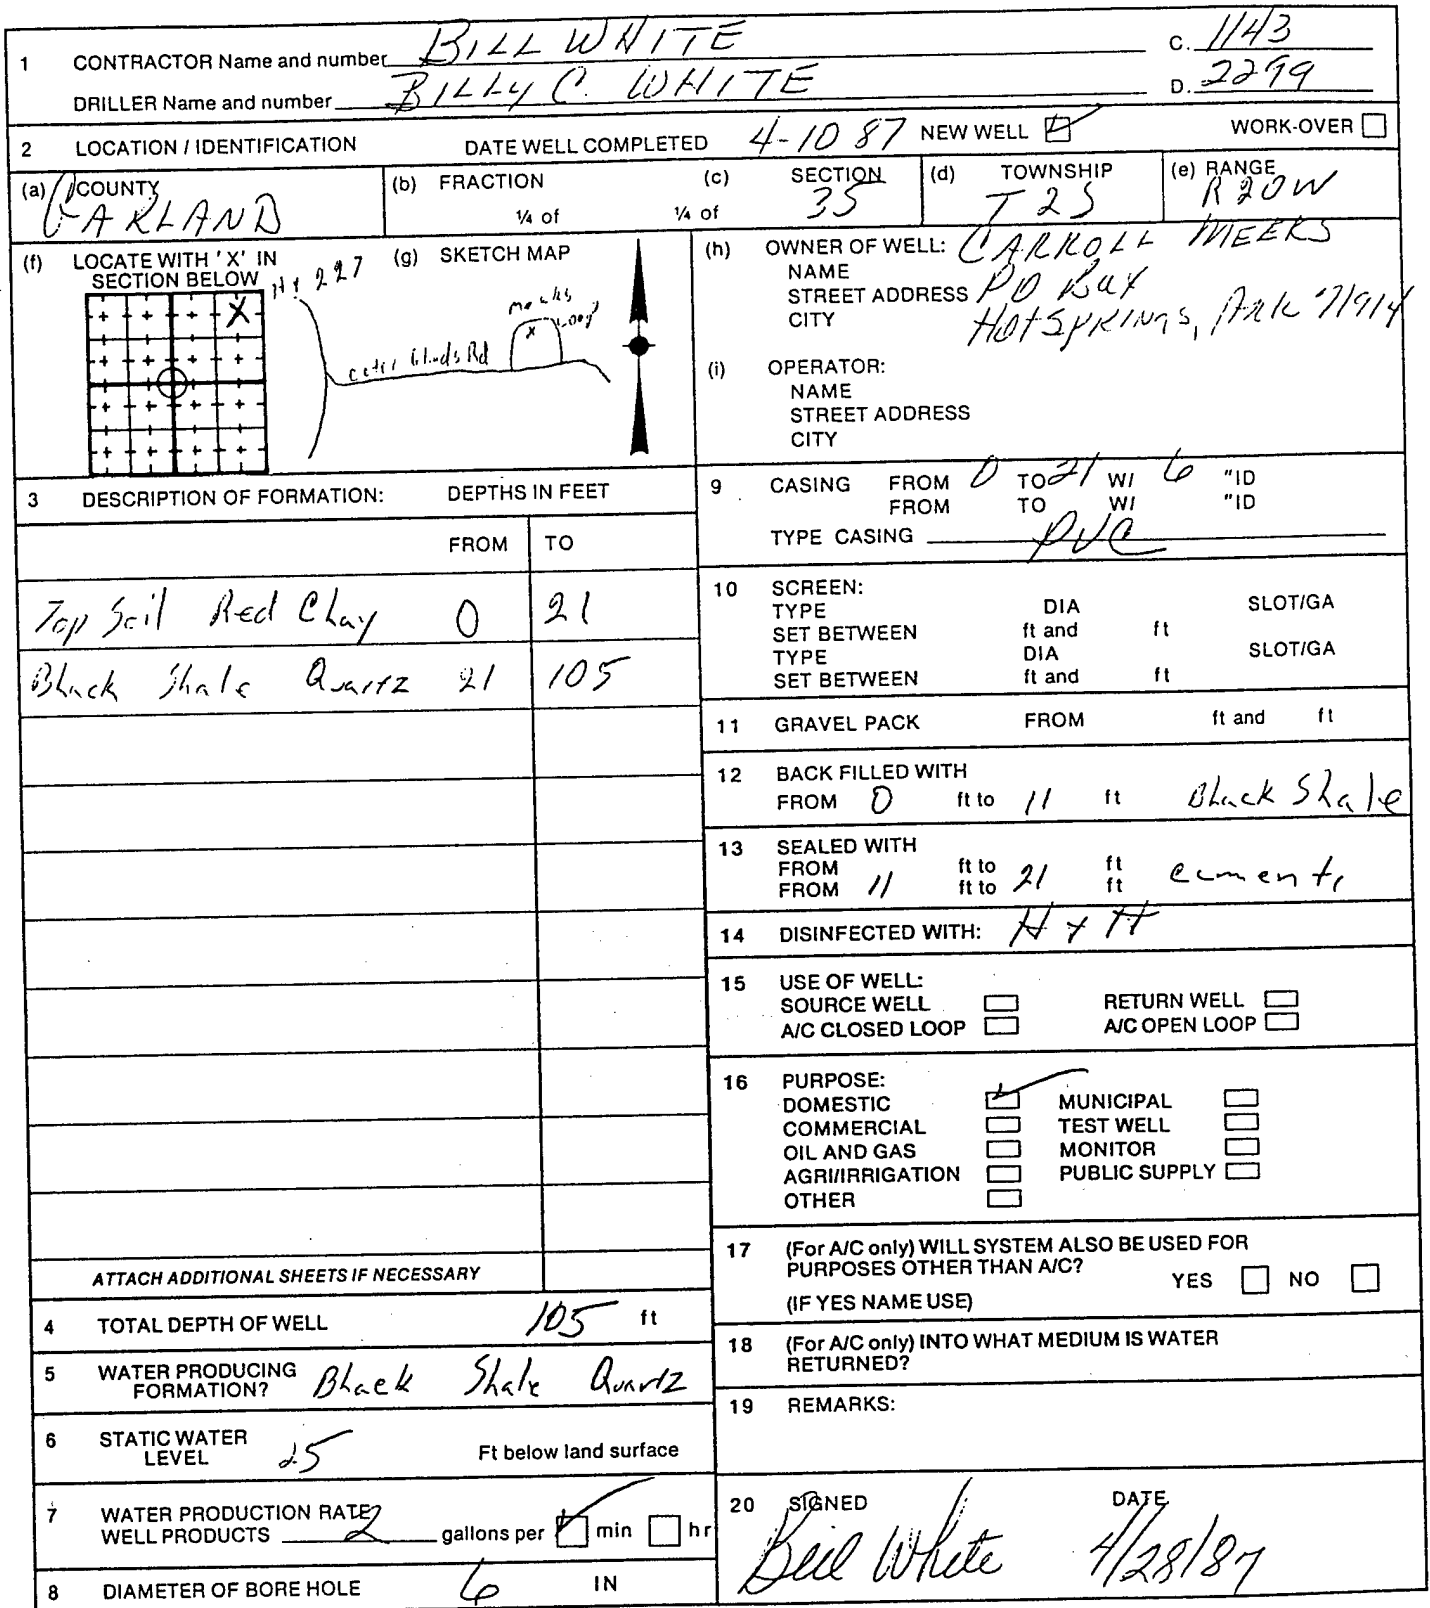 1 CONTRACTOR Name and number BILL WHITE C. 1143
DRILLER Name and number BILLY C. WHITE D. 2299
2 LOCATION / IDENTIFICATION DATE WELL COMPLETED 4-10 87 NEW WELL WORK-OVER
(a) COUNTY (b) FRACTION (c) SECTION (d) TOWNSHIP (e) RANGE
GARLAND ¼ of ¼ of 35 T 2S R 20W
(f) LOCATE WITH 'X' IN SECTION BELOW
X
(g) SKETCH MAP
Hy 227
Rd
x
(h) OWNER OF WELL: CARROLL MEEKS
NAME
STREET ADDRESS PO Box
CITY Hot Springs, Ark 71914
(i) OPERATOR:
NAME
STREET ADDRESS
CITY
3 DESCRIPTION OF FORMATION: DEPTHS IN FEET
FROM TO
Top Soil Red Chay 0 21
Bhack Shale Quartz 21 105
ATTACH ADDITIONAL SHEETS IF NECESSARY
4 TOTAL DEPTH OF WELL 105 ft
5 WATER PRODUCING FORMATION? Bhack Shale Quartz
6 STATIC WATER LEVEL 25 Ft below land surface
7 WATER PRODUCTION RATE
WELL PRODUCTS 2 gallons per min hr
8 DIAMETER OF BORE HOLE 6 IN
9 CASING FROM 0 TO 21 W/ 6 "ID
FROM TO W/ "ID
TYPE CASING PVC
10 SCREEN:
TYPE DIA SLOT/GA
SET BETWEEN ft and ft
TYPE DIA SLOT/GA
SET BETWEEN ft and ft
11 GRAVEL PACK FROM ft and ft
12 BACK FILLED WITH
FROM 0 ft to 11 ft Bhack Shale
13 SEALED WITH
FROM ft to ft
FROM 11 ft to 21 ft cement
14 DISINFECTED WITH: H + H
15 USE OF WELL:
SOURCE WELL RETURN WELL
A/C CLOSED LOOP A/C OPEN LOOP
16 PURPOSE:
DOMESTIC MUNICIPAL
COMMERCIAL TEST WELL
OIL AND GAS MONITOR
AGRI/IRRIGATION PUBLIC SUPPLY
OTHER
17 (For A/C only) WILL SYSTEM ALSO BE USED FOR
PURPOSES OTHER THAN A/C? YES NO
(IF YES NAME USE)
18 (For A/C only) INTO WHAT MEDIUM IS WATER
RETURNED?
19 REMARKS:
20 SIGNED DATE
Bill White 4/28/87